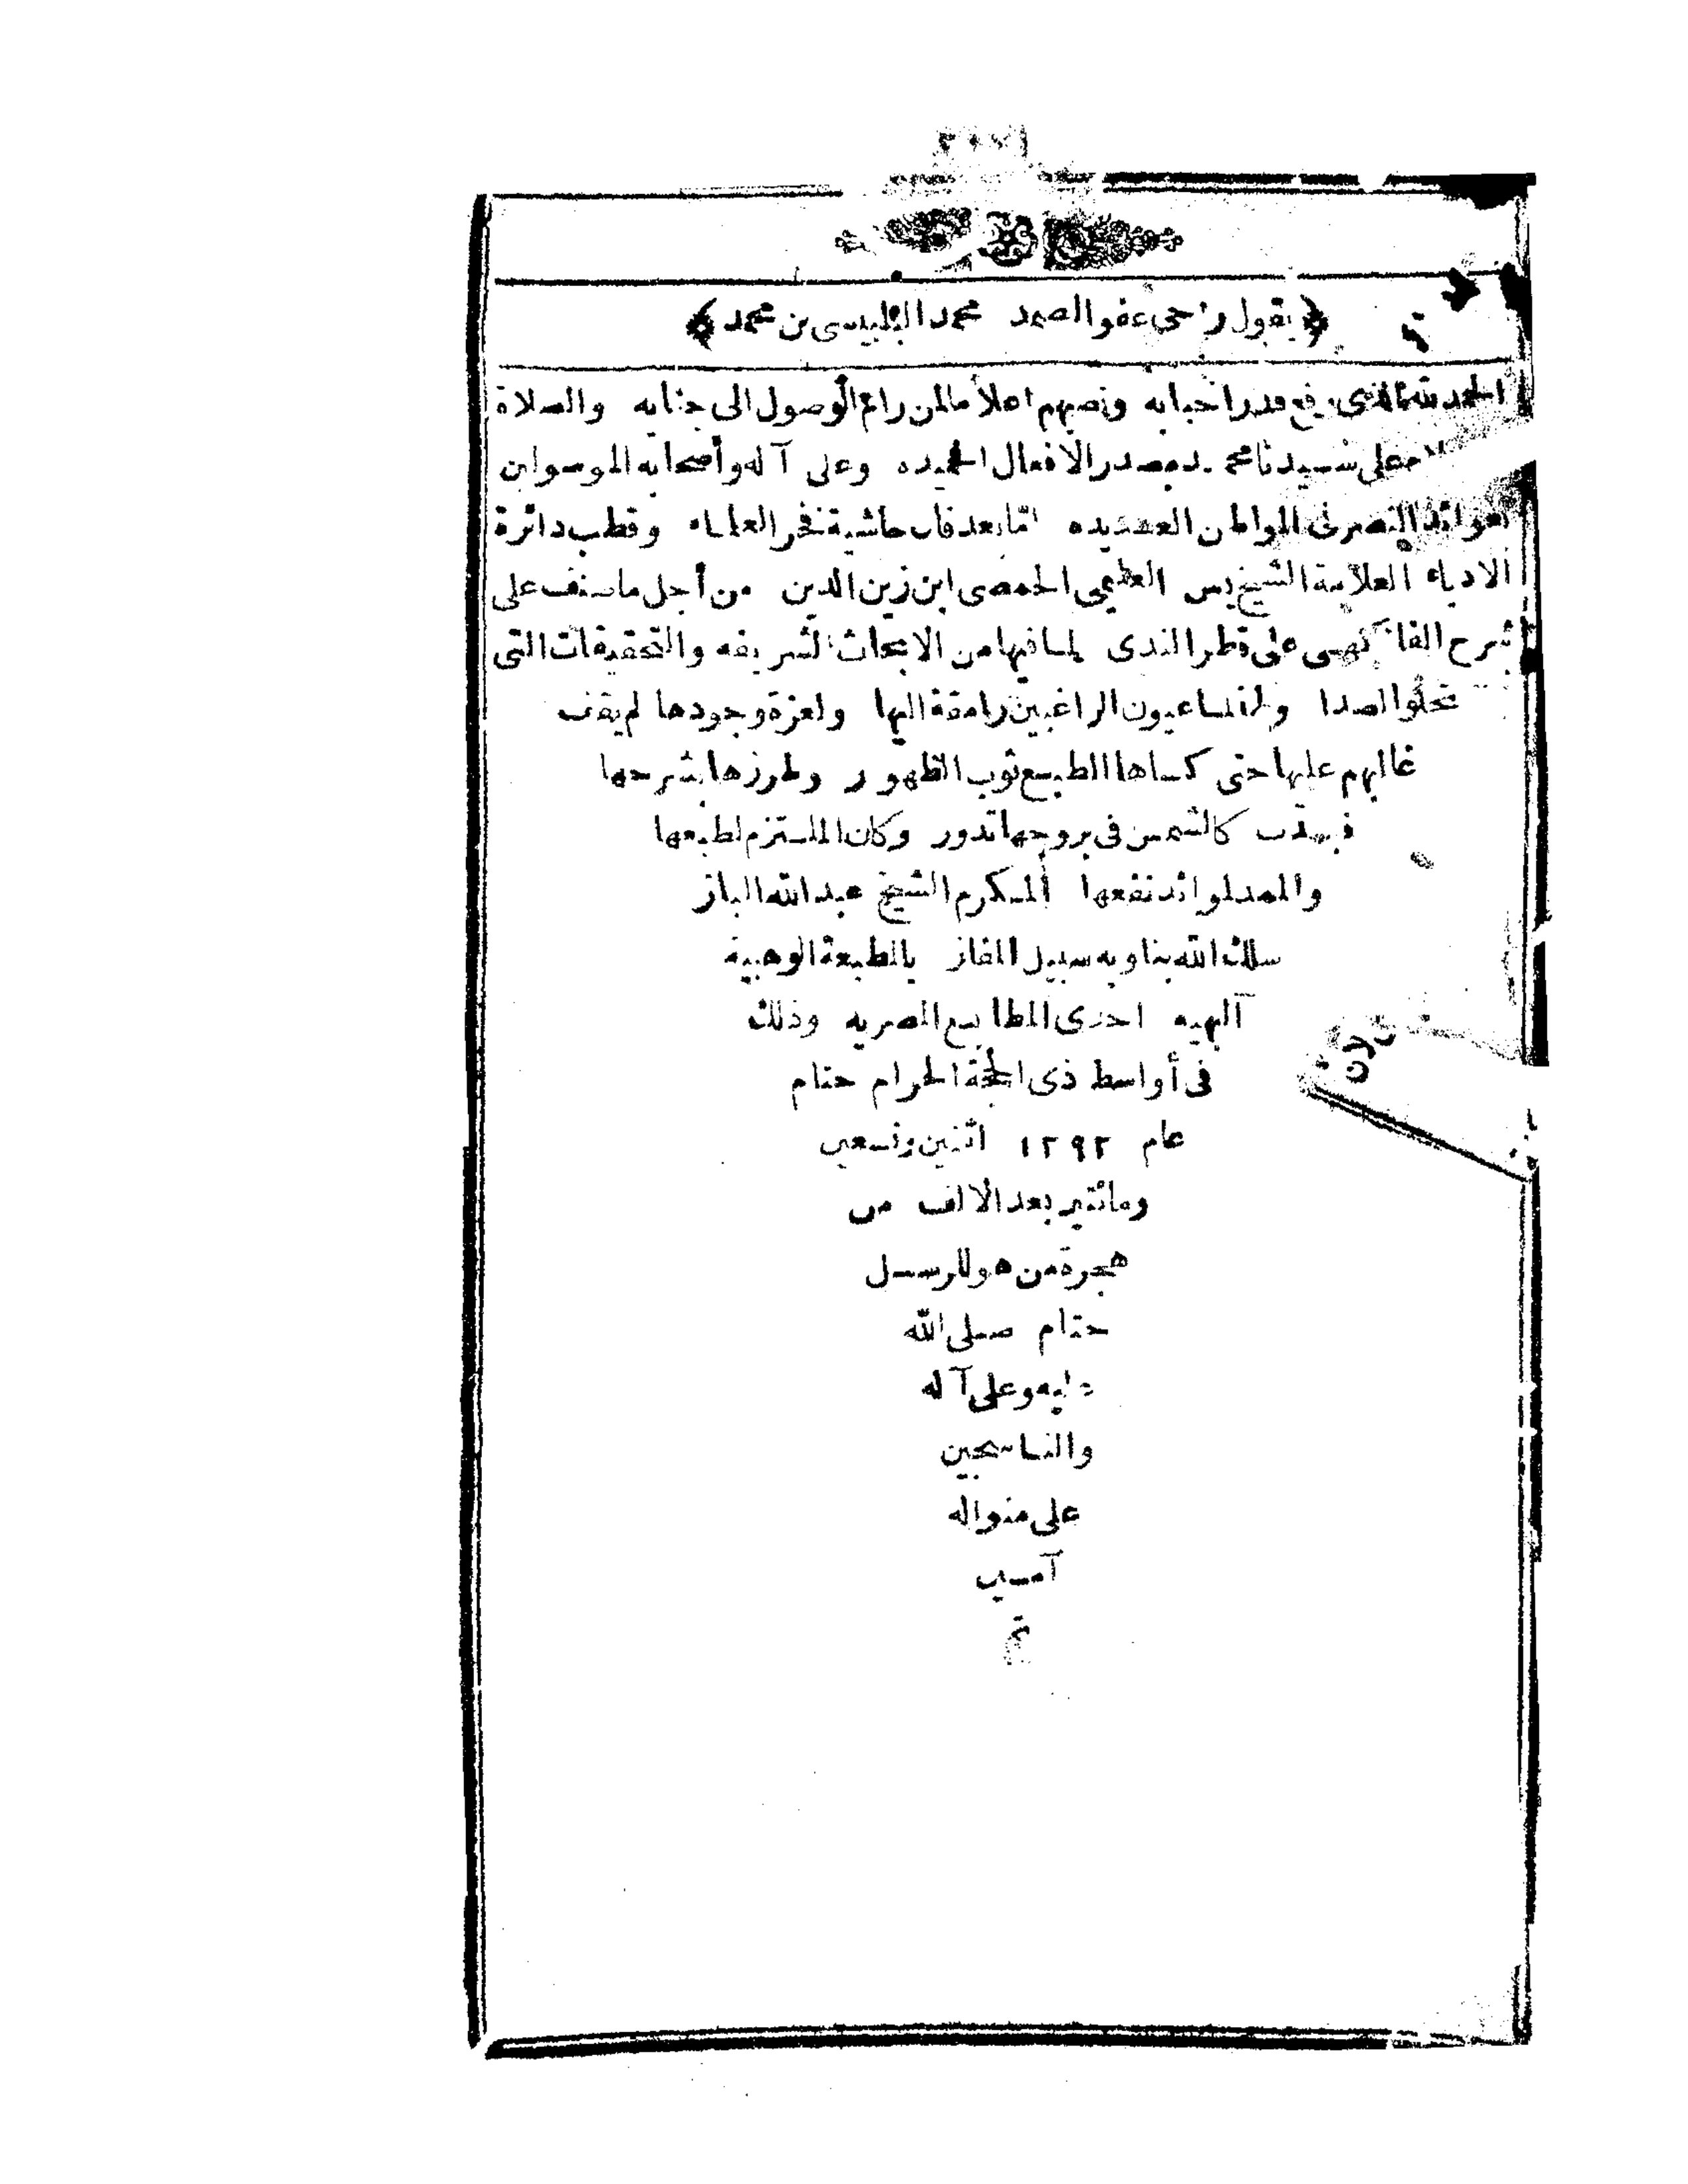 ﴿يقول راجى عفو الصمد محمد البلبيسى بن محمد﴾
الحمد لله الذى رفع قدر احبابه ونصبهم اعلاما لمن رام الوصول الى جنابه والصلاة
على سيدنا محمد مصدر الافعال الحميده وعلى آله وأصحابه
النصر فى المواطن العديده أما بعد فان حاشية فخر العلماء وقطب دائرة
الادباء العلامة الشيخ يس العليمى الحمصى ابن زين الدين من أجل ما صنف على
شرح الفاكهى على قطر الندى لما فيها من الابحاث الشريفه والتحقيقات التى
تجلو الصدا ولم تزل عيون الراغبين رامقة اليها ولعزة وجودها لم يقف
غالبهم عليها حتى كساها الطبع ثوب الظهور وطرزها بشرحها
فبدت كالشمس فى بروجها تدور وكان الملتزم لطبعها
والممد لموائد نفعها المكرم الشيخ عبد الله الباز
سلك الله بنا وبه سبيل المفاز بالمطبعة الوهبية
البهيه احدى المطابع المصريه وذلك
فى أواسط ذى الحجة الحرام ختام
عام ١٢٩٢ اثنين وتسعين
ومائتين بعد الالف من
هجرة من هو للرسل
ختام صلى الله
عليه وعلى آله
والناسجين
على منواله
آمين
تم